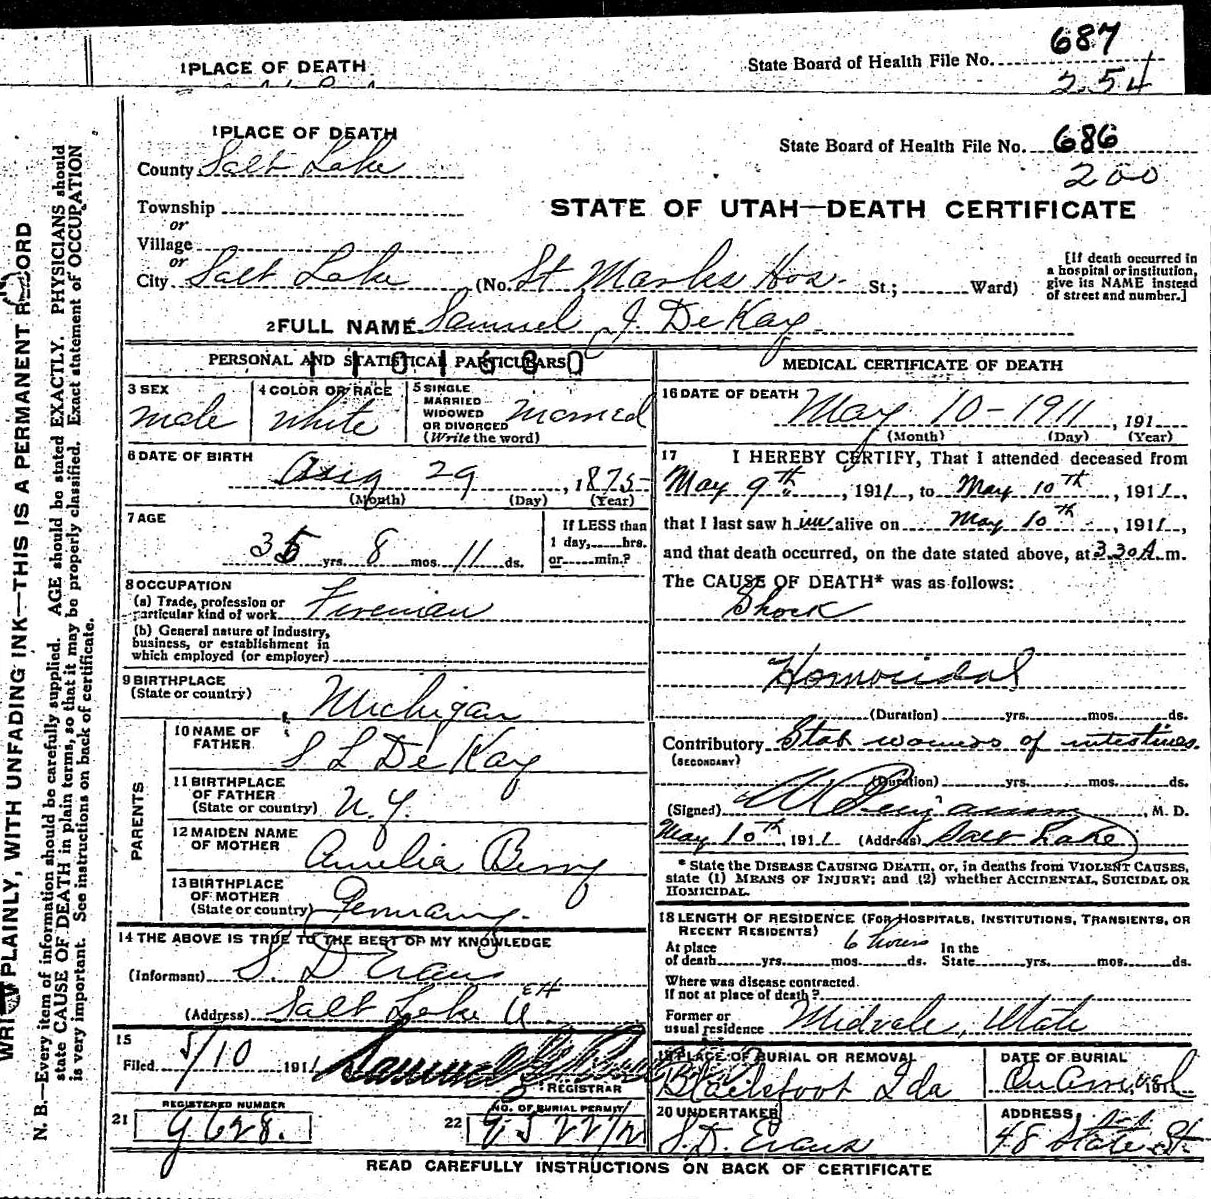 1 PLACE OF DEATH
State Board of Health File No. 687
254
1 PLACE OF DEATH
State Board of Health File No. 686
200
County Salt Lake
Township
or
Village
or
City Salt Lake (No. St Marks Hos. St.; Ward)
[If death occurred in
a hospital or institution,
give its NAME instead
of street and number.]
STATE OF UTAH—DEATH CERTIFICATE
2 FULL NAME Samuel J. DeKay
PERSONAL AND STATISTICAL PARTICULARS
3 SEX
male
4 COLOR OR RACE
white
5 SINGLE
MARRIED
WIDOWED
OR DIVORCED
(Write the word)
married
6 DATE OF BIRTH
Aug 29, 1875
(Month) (Day) (Year)
7 AGE
35 yrs. 8 mos. 11 ds.
If LESS than
1 day, hrs.
or min.?
8 OCCUPATION
(a) Trade, profession or
particular kind of work Fireman
(b) General nature of industry,
business, or establishment in
which employed (or employer)
9 BIRTHPLACE
(State or country) Michigan
PARENTS
10 NAME OF
FATHER S L DeKay
11 BIRTHPLACE
OF FATHER
(State or country) N.Y.
12 MAIDEN NAME
OF MOTHER Amelia Berry
13 BIRTHPLACE
OF MOTHER
(State or country) Germany.
14 THE ABOVE IS TRUE TO THE BEST OF MY KNOWLEDGE
(Informant) S. D Evans
(Address) Salt Lake
15
Filed 5/10 1911
REGISTRAR
REGISTERED NUMBER
21 9628.
NO. OF BURIAL PERMIT
22
MEDICAL CERTIFICATE OF DEATH
16 DATE OF DEATH May 10-1911, 191
(Month) (Day) (Year)
17 I HEREBY CERTIFY, That I attended deceased from
May 9th, 1911, to May 10th, 1911,
that I last saw him alive on May 10th, 1911,
and that death occurred, on the date stated above, at 3.30A.m.
The CAUSE OF DEATH* was as follows:
Shock
Homocidal
(Duration) yrs. mos. ds.
Contributory Stab wounds of intestines.
(SECONDARY)
(Duration) yrs. mos. ds.
(Signed) Benjamin, M. D.
May 10th, 1911 (Address) Salt Lake
* State the DISEASE CAUSING DEATH, or, in deaths from VIOLENT CAUSES,
state (1) MEANS OF INJURY; and (2) whether ACCIDENTAL, SUICIDAL OR
HOMICIDAL.
18 LENGTH OF RESIDENCE (FOR HOSPITALS, INSTITUTIONS, TRANSIENTS, OR
RECENT RESIDENTS)
At place 6 hours In the
of death yrs. mos. ds. State yrs. mos. ds.
Where was disease contracted.
If not at place of death?
Former or
usual residence Midvale, Utah
19 PLACE OF BURIAL OR REMOVAL
Blackfoot Ida
DATE OF BURIAL
20 UNDERTAKER
S. D. Evans
ADDRESS
48 State St.
READ CAREFULLY INSTRUCTIONS ON BACK OF CERTIFICATE
WRITE PLAINLY, WITH UNFADING INK—THIS IS A PERMANENT RECORD
N. B.—Every item of information should be carefully supplied. AGE should be stated EXACTLY. PHYSICIANS should
state CAUSE OF DEATH in plain terms, so that it may be properly classified. Exact statement of OCCUPATION
is very important. See instructions on back of certificate.